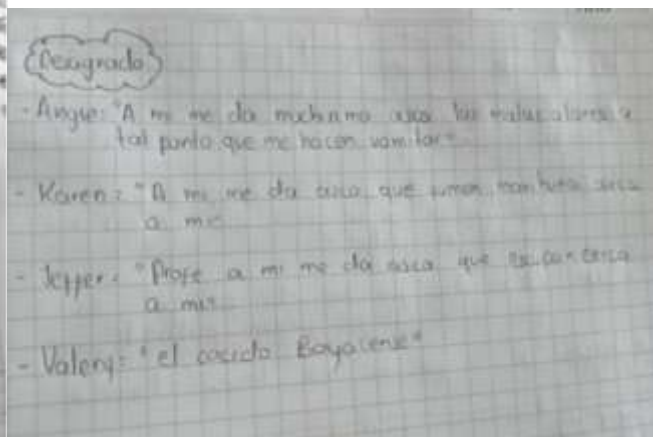 Desagrado
- Angie: "A mi me da muchisimo asco los malos olores a
tal punto que me hacen vomitar"
- Karen: "A mi me da asco que fumen marihuana cerca
a mi"
- Jeffer: "Profe a mi me da asco que escupan cerca
a mi"
- Valery: "el cocido Boyacense"